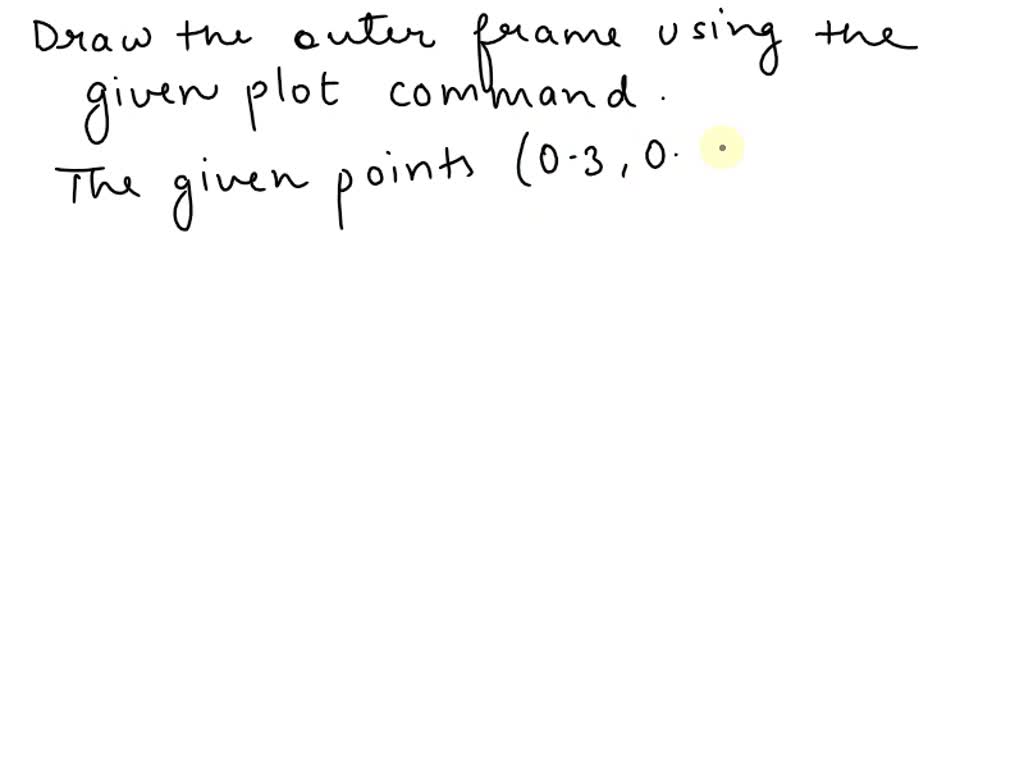 Draw the outer frame using the
given plot command.
The given points (0.3, 0.